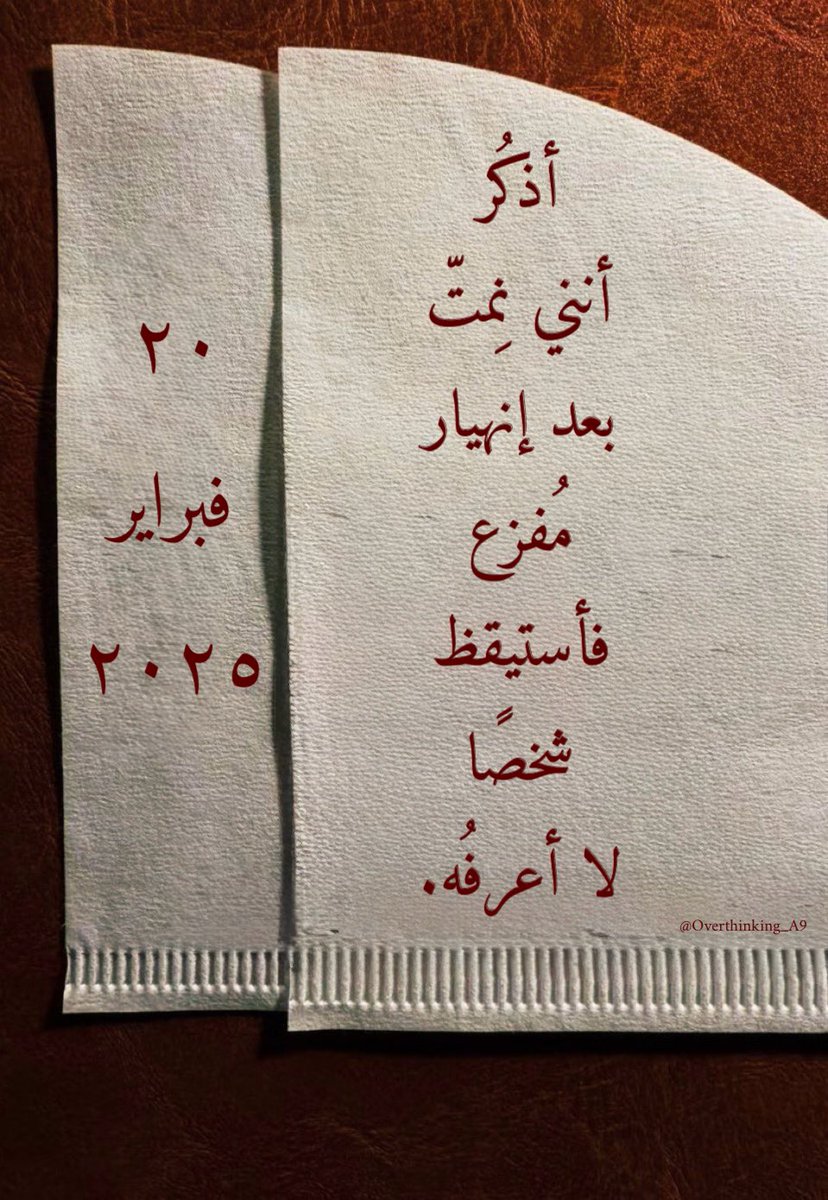 أذكُر
أنني نِمتّ
بعد إنهيار
مُفزع
فأستيقظ
شخصًا
لا أعرفُه.
@Overthinking_A9
٢٠
فبراير
٢٠٢٥